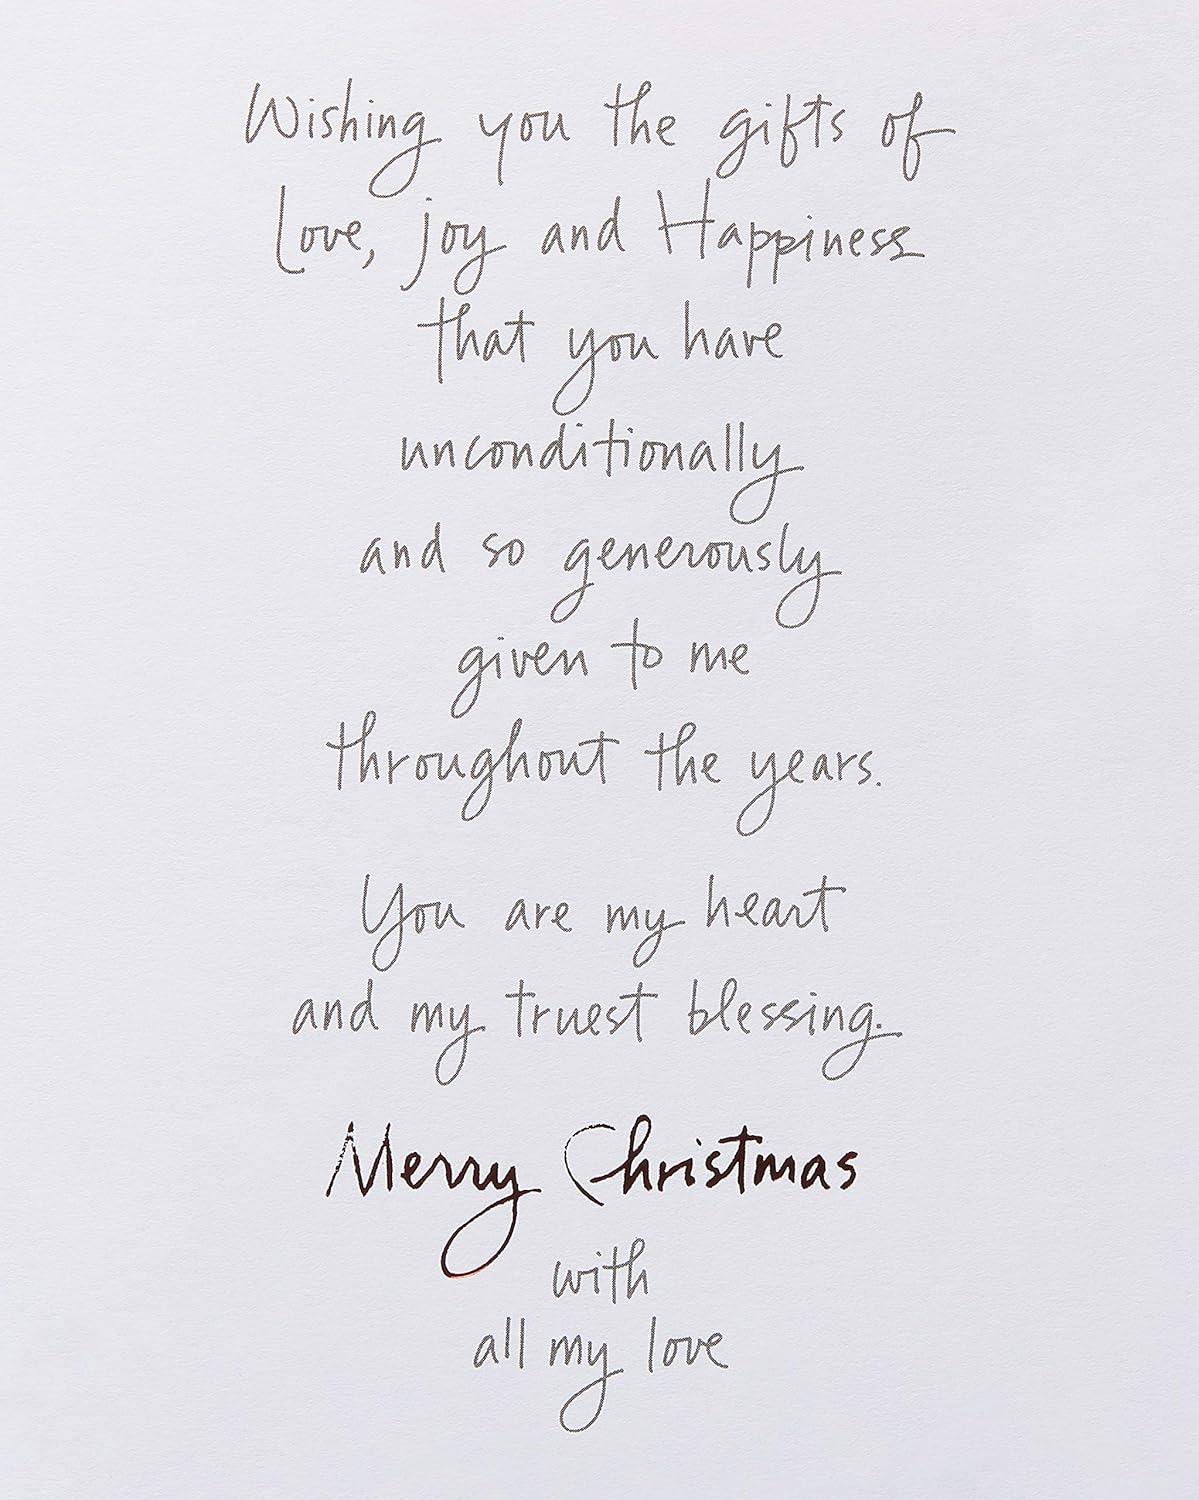 Wishing you the gifts of
Love, joy and Happiness
that you have
unconditionally
and so generously
given to me
throughout the years.
You are my heart
and my truest blessing.
Merry Christmas
with
all my love